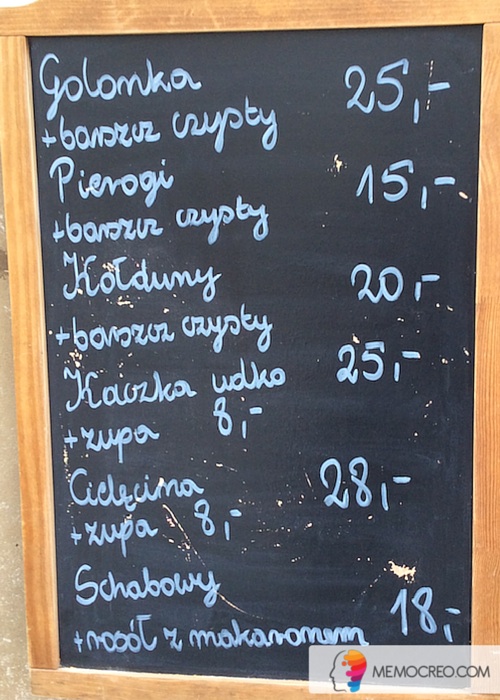 Golonka 25,-
+barszcz czysty
Pierogi 15,-
+barszcz czysty
Kołduny 20,-
+barszcz czysty
Kaczka udko 25,-
+zupa 8,-
Cielęcina 28,-
+zupa 8,-
Schabowy 18,-
+rosół z makaronem
MEMOCREO.COM